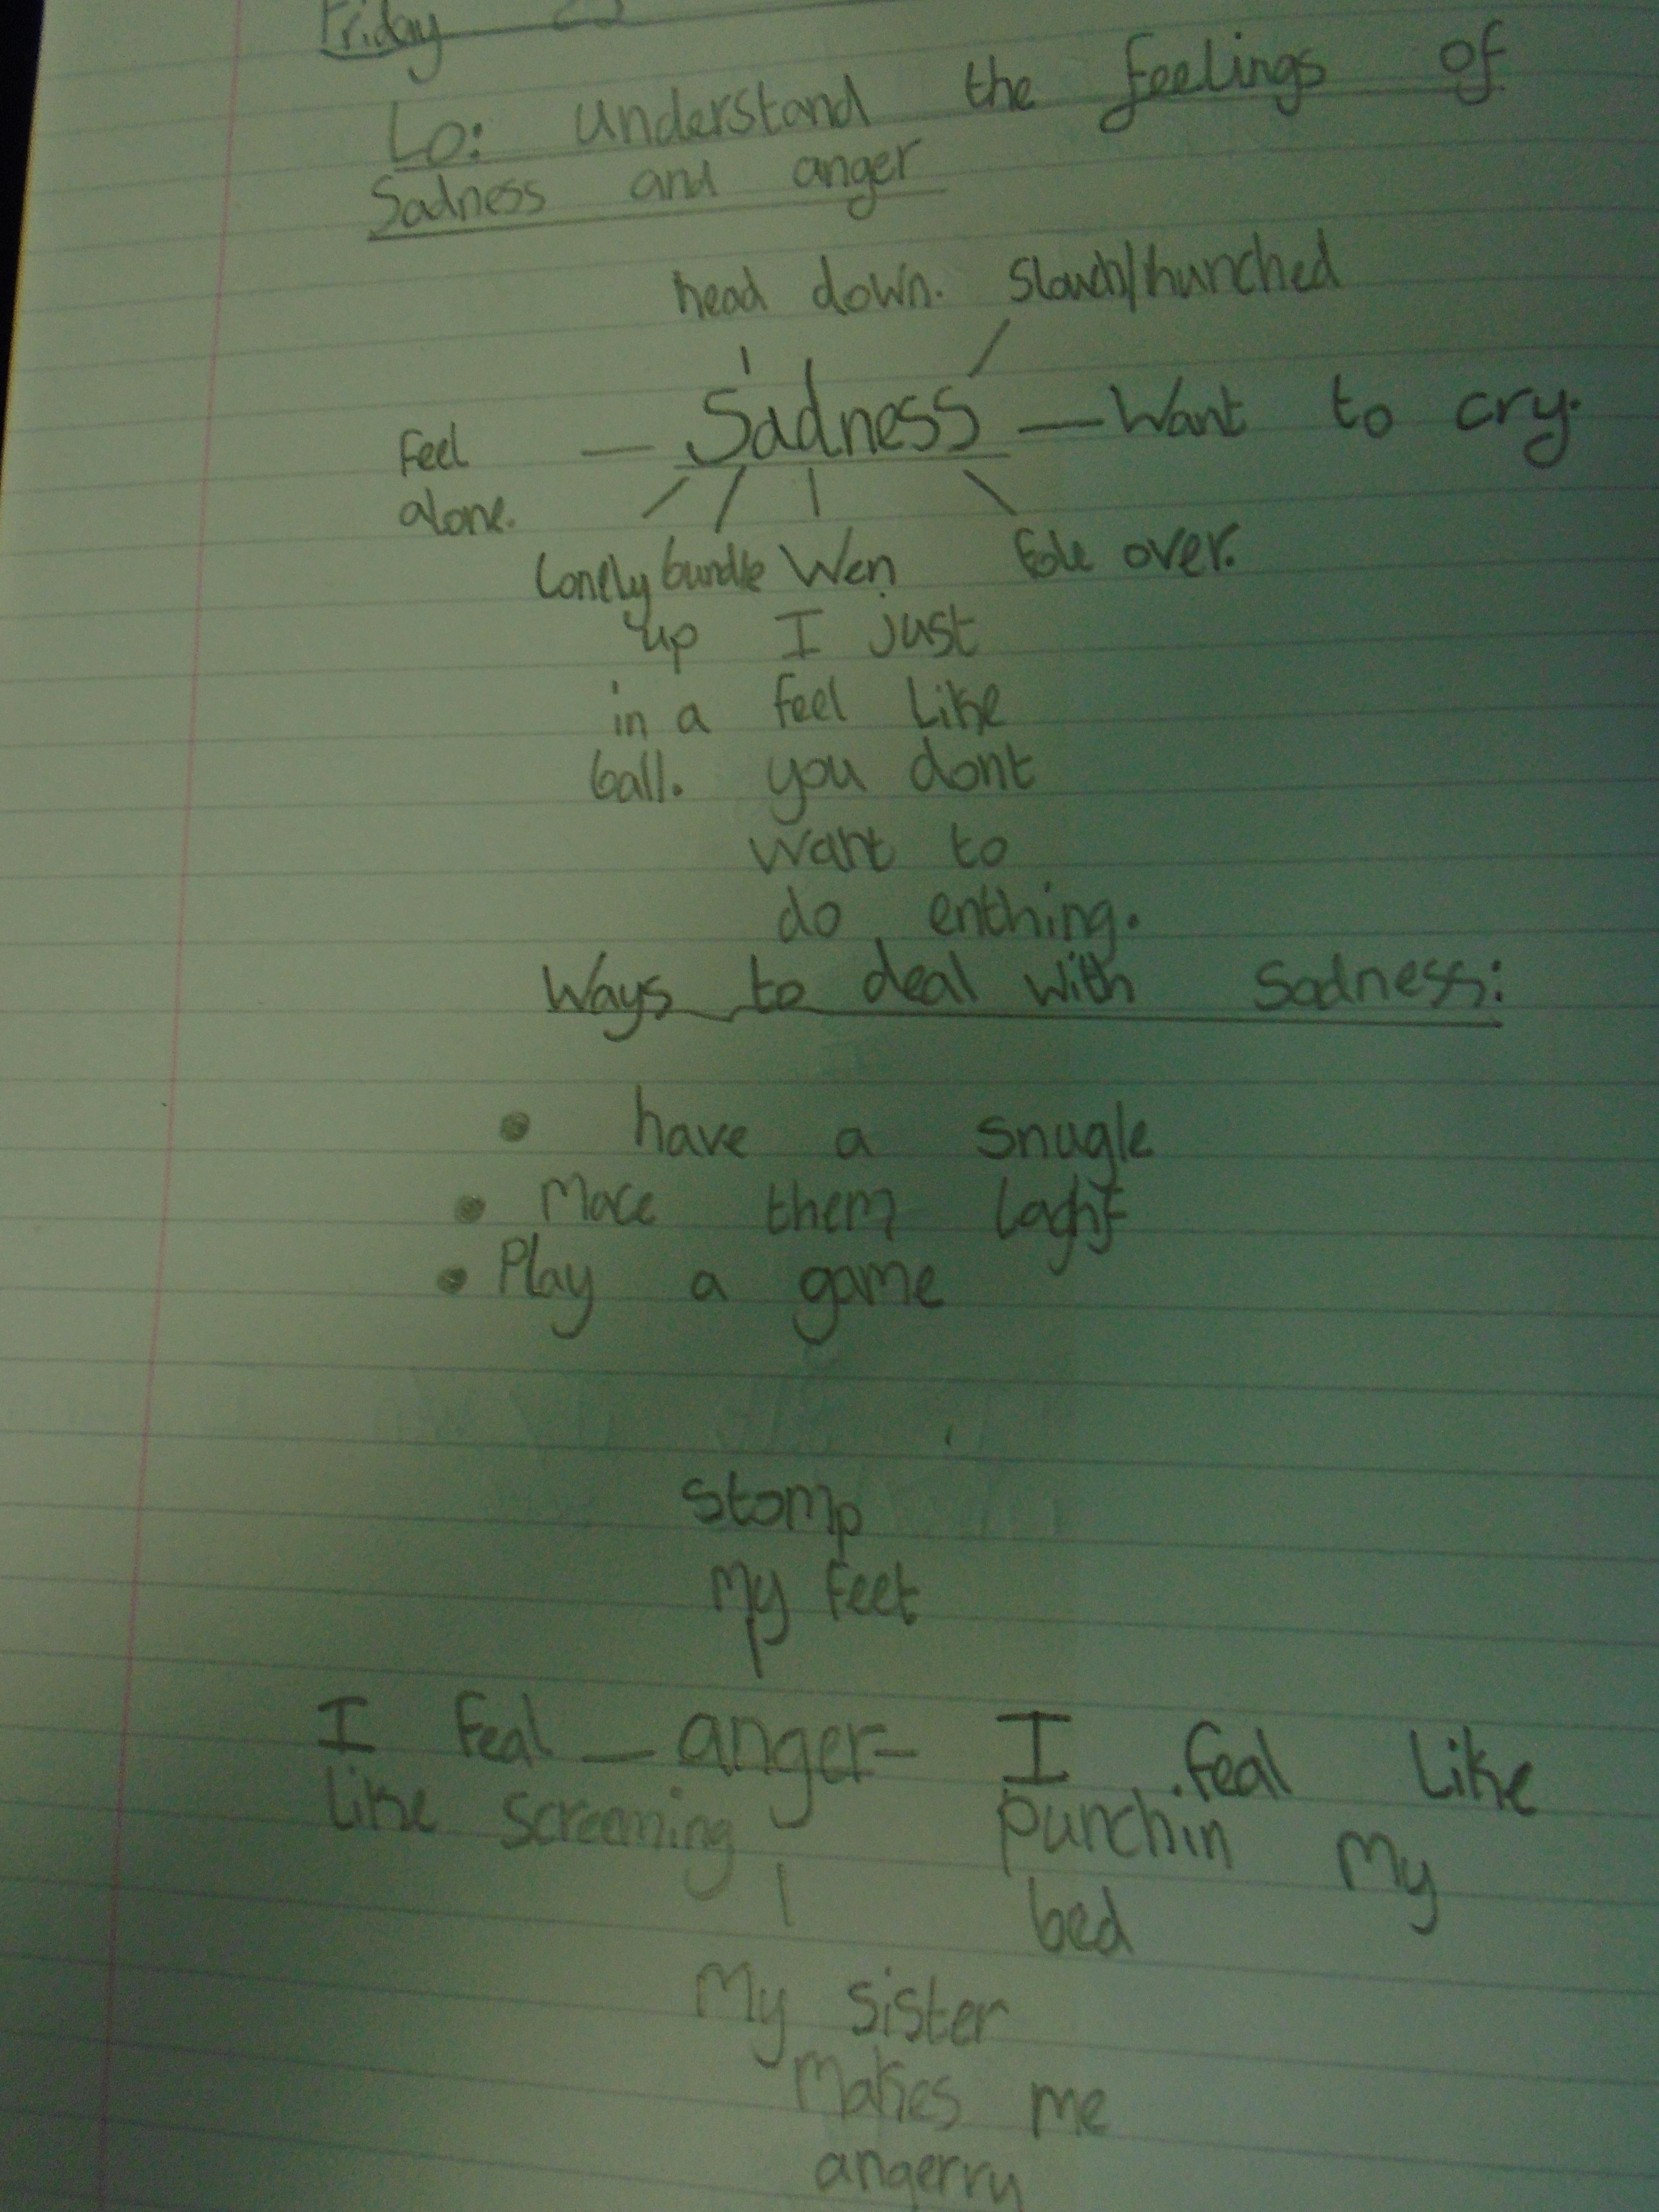 Friday
Lo: understand the feelings of
Sadness and anger
head down. Slouch/hunched
Sadness
Want to cry.
Feel
alone.
Lonely
bundle
up
in a
ball.
Wen
I just
feel Like
you dont
want to
do enthing.
over.
Ways to deal with Sadness:
have a snugle
Mace them
Play a game
Stomp
My feet
anger
I feal
like screeming
I feal Like
punchin My
bed
My sister
Makes me
angerry